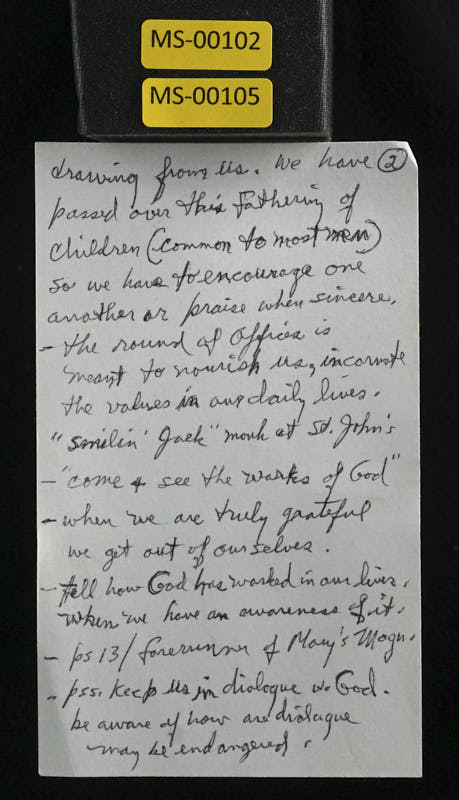 MS-00102
MS-00105
drawing from us. We have ②
passed over this Fathering of
children (common to most men)
so we have to encourage one
another or praise when sincere.
- the round of offices is
meant to nourish us, incarnate
the values in our daily lives.
"smilin' Jack" monk at St. John's
- "come & see the works of God"
- when we are truly grateful
we get out of ourselves.
- tell how God has worked in our lives,
when we have an awareness of it.
- ps 13/ forerunner of Mary's Magn.
- pss. keep us in dialogue w. God.
be aware of how our dialogue
may be endangered.